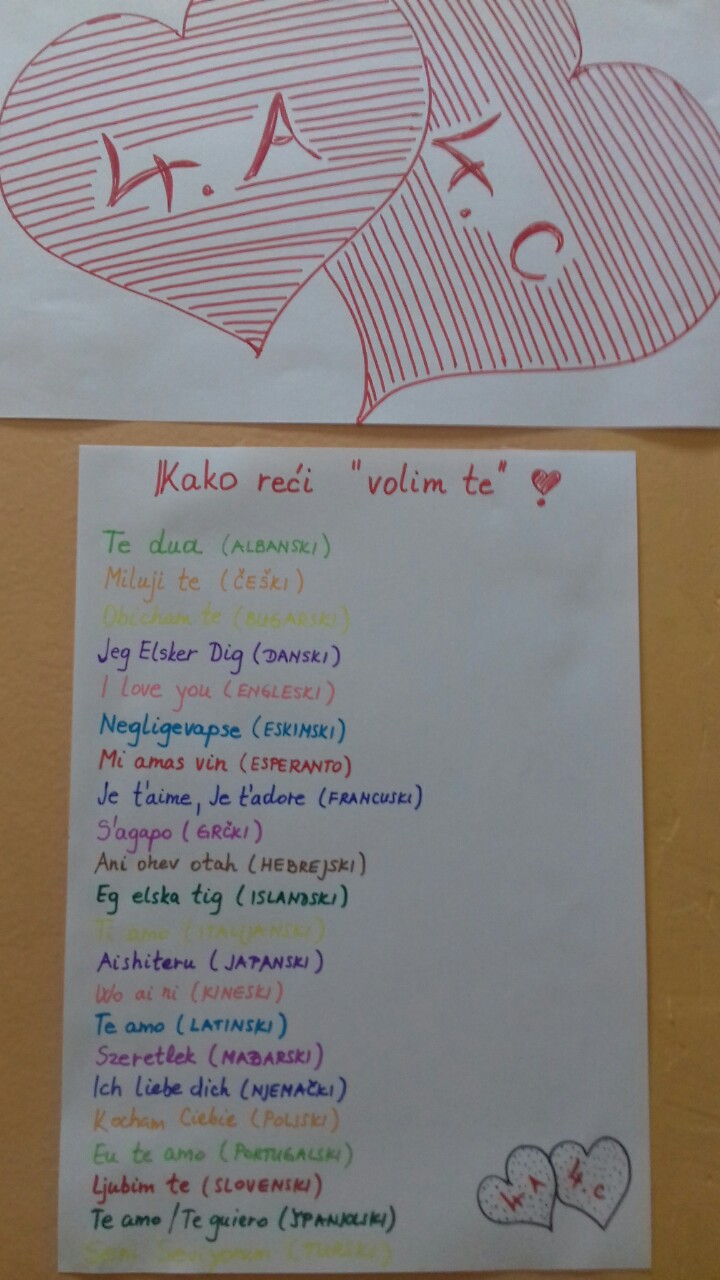 4. A
4. C
Kako reći "volim te" !
Te dua (ALBANSKI)
Miluji te (ČEŠKI)
Obicham te (BUGARSKI)
Jeg Elsker Dig (DANSKI)
I love you (ENGLESKI)
Negligevapse (ESKIMSKI)
Mi amas vin (ESPERANTO)
Je t'aime, Je t'adore (FRANCUSKI)
S'agapo (GRČKI)
Ani ohev otah (HEBREJSKI)
Eg elska tig (ISLANDSKI)
Ti amo (ITALIJANSKI)
Aishiteru (JAPANSKI)
Wo ai ni (KINESKI)
Te amo (LATINSKI)
Szeretlek (MAĐARSKI)
Ich liebe dich (NJEMAČKI)
Kocham Ciebie (POLJSKI)
Eu te amo (PORTUGALSKI)
Ljubim te (SLOVENSKI)
Te amo / Te quiero (ŠPANJOLSKI)
Seviyorum (TURSKI)
4. A
4. C